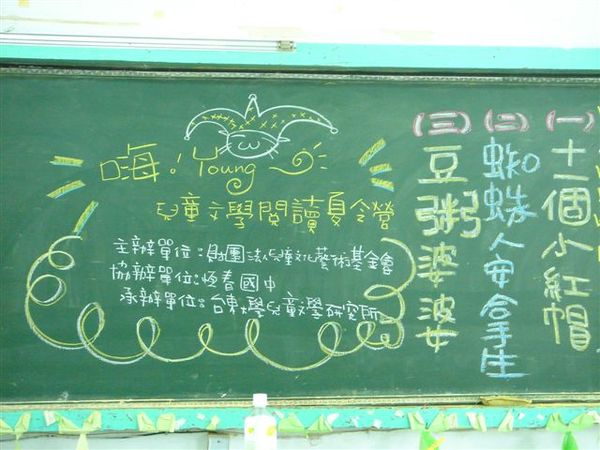 嗨！Young
兒童文學閱讀夏令營
主辦單位：財團法人兒童文化藝術基金會
協辦單位：恆春國中
承辦單位：台東大學兒童文學研究所
(一)十二個小紅帽
(二)蜘蛛人安拿生
(三)豆粥婆婆